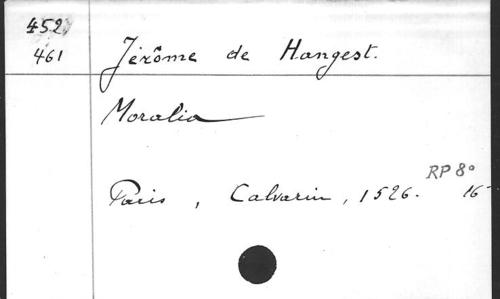 452
461
Jérôme de Hangest.
Moralia
RP 8°
Paris, Calvarin, 1526. 16-